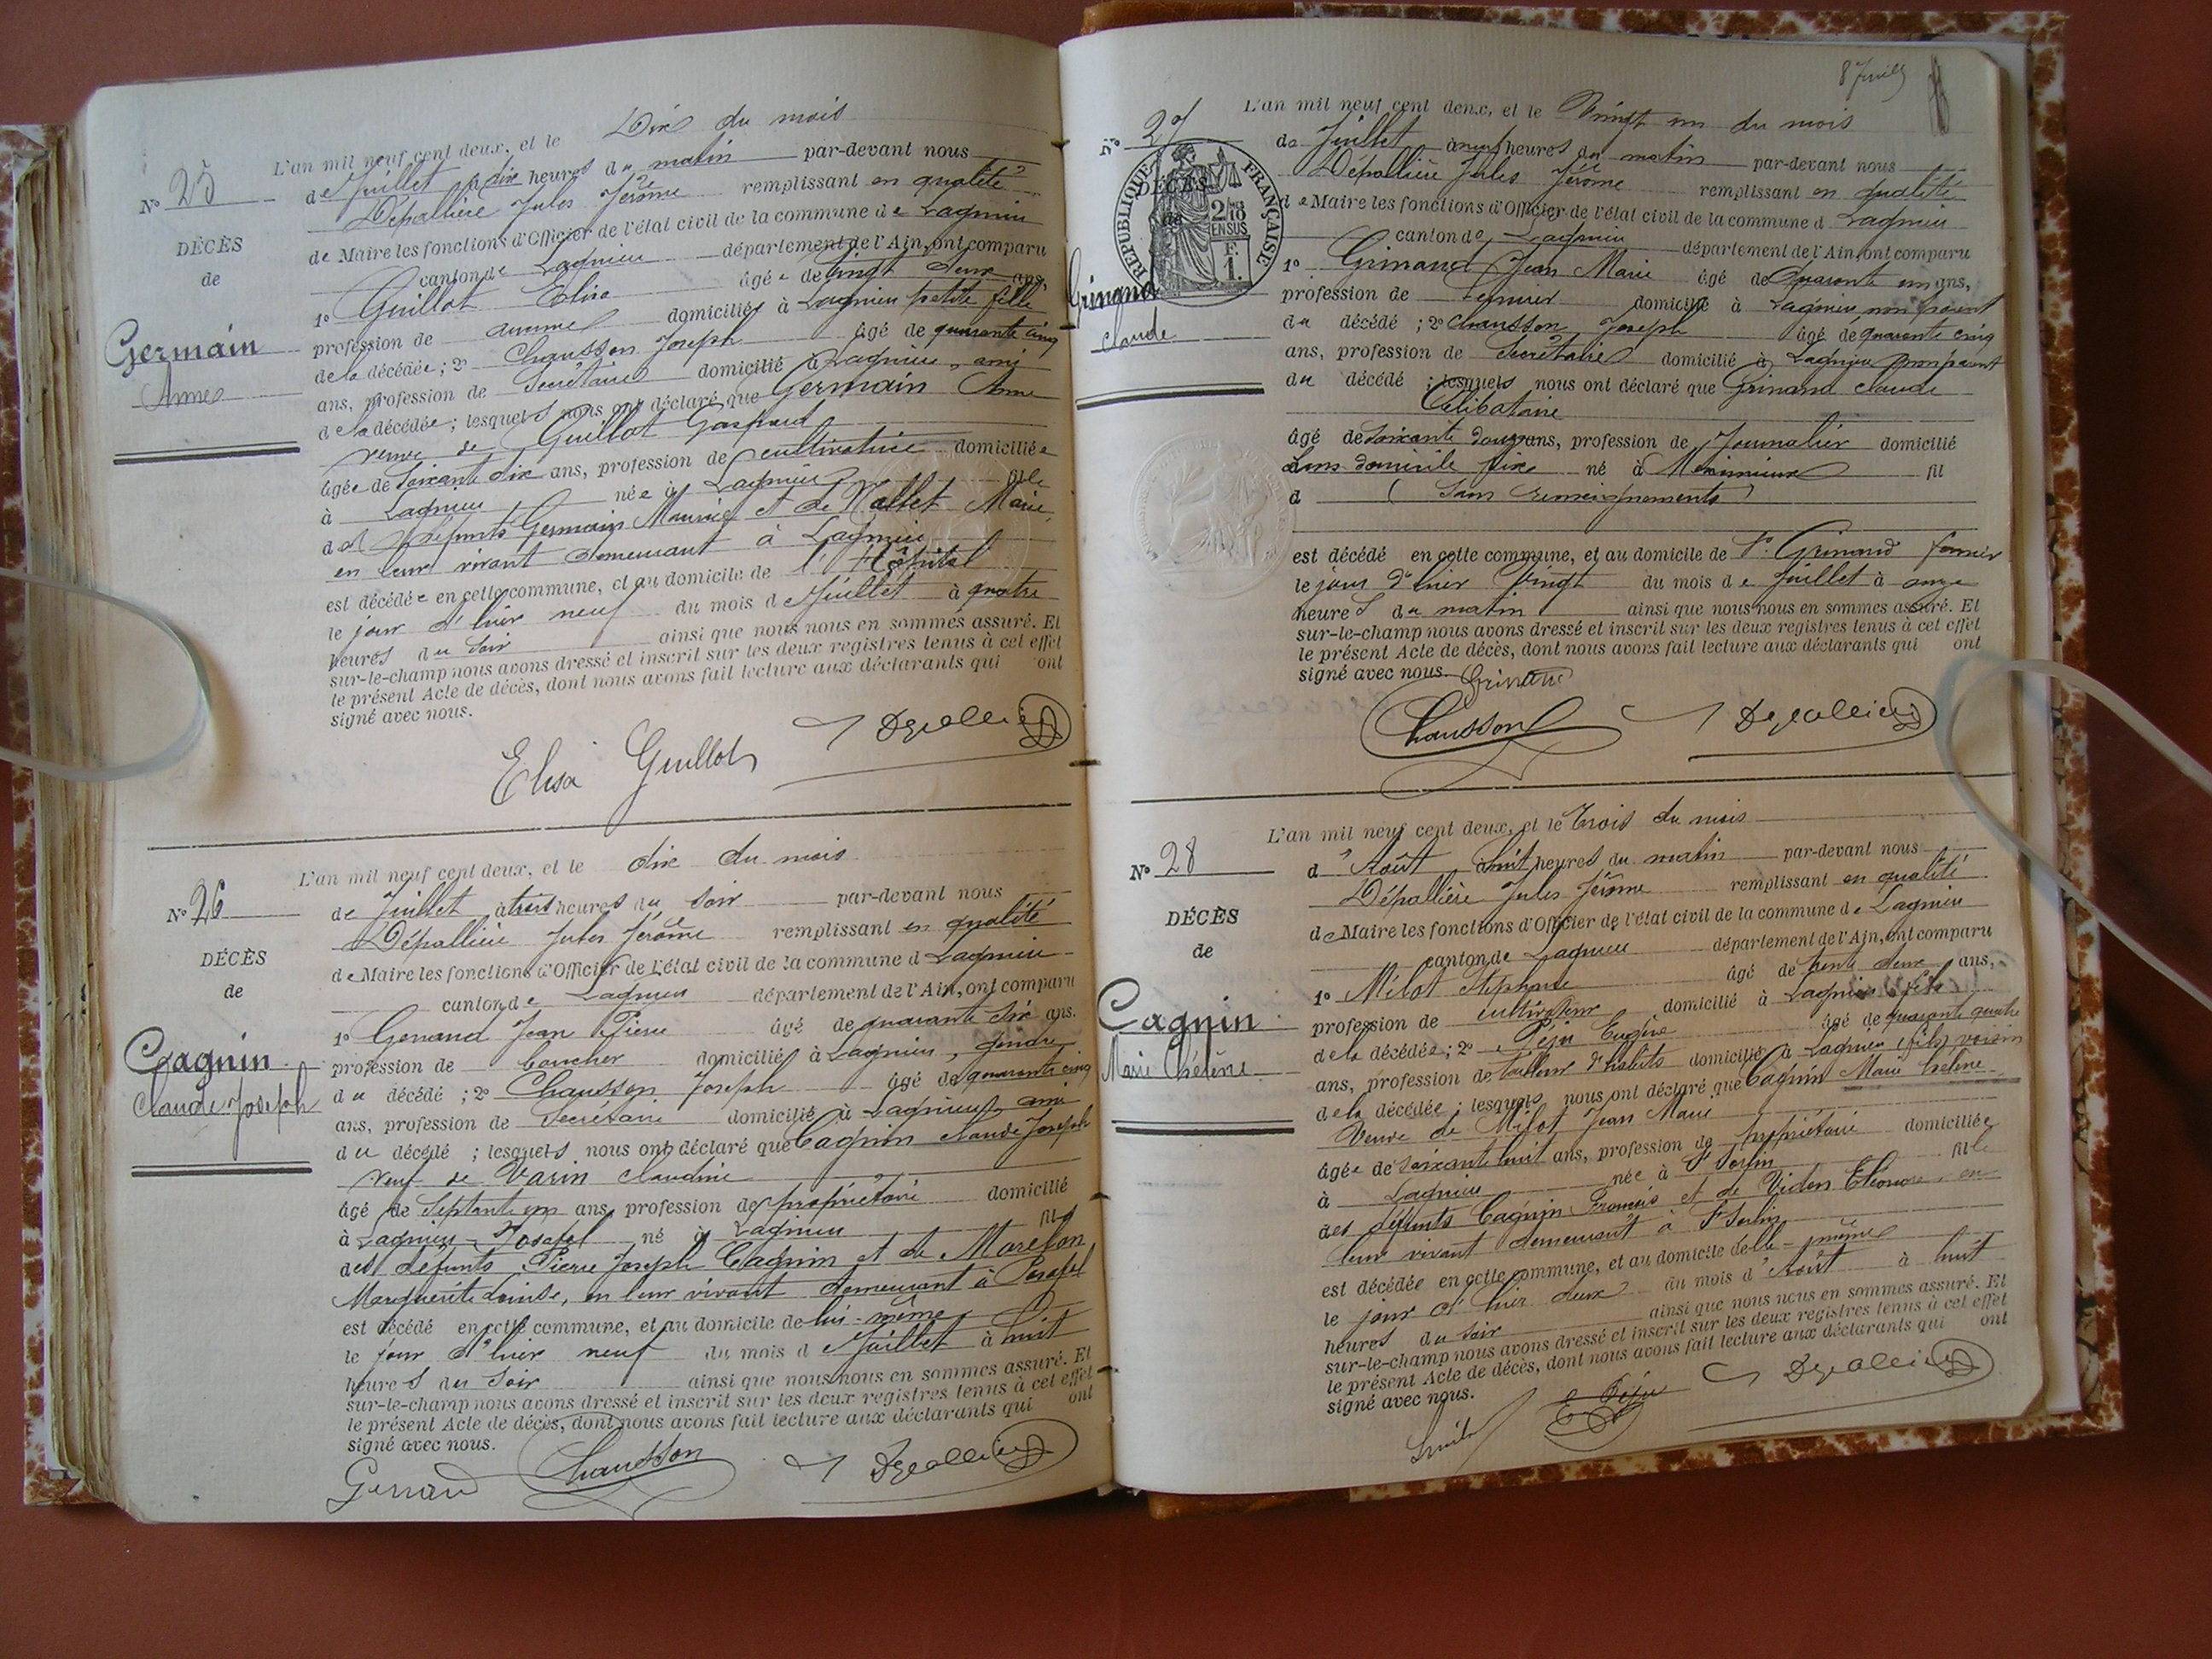 N° 25
DÉCÈS
de
Germain
Anne
L'an mil neuf cent deux, et le Dix du mois
de Juillet à dix heures du matin par-devant nous
Dépallière Jules Jérôme remplissant en qualité
de Maire les fonctions d'Officier de l'état civil de la commune de Lagnieu
canton de Lagnieu département de l'Ain, ont comparu
1° Guillot Elisa âgée de vingt deux ans,
profession de domiciliée à Lagnieu petite fille
de la décédée ; 2° Chausson Joseph âgé de quarante cinq
ans, profession de Secrétaire domicilié à Lagnieu, ami
de la décédée ; lesquels nous ont déclaré que Germain Anne
veuve de Guillot Gaspard
âgée de Soixante dix ans, profession de cultivatrice domiciliée
à Lagnieu née à Lagnieu fille
des défunts Germain Maurice et de Vallet Marie,
en leur vivant demeurant à Lagnieu
est décédée en cette commune, et au domicile de l'Hôpital
le jour d'hier neuf du mois de Juillet à quatre
heures du soir ainsi que nous nous en sommes assuré. Et
sur-le-champ nous avons dressé et inscrit sur les deux registres tenus à cet effet
le présent Acte de décès, dont nous avons fait lecture aux déclarants qui ont
signé avec nous.
Elisa Guillot Depallière
N° 26
DÉCÈS
de
Cagnin
Claude Joseph
L'an mil neuf cent deux, et le dix du mois
de Juillet à trois heures du soir par-devant nous
Dépallière Jules Jérôme remplissant en qualité
de Maire les fonctions d'Officier de l'état civil de la commune d Lagnieu
canton de Lagnieu département de l'Ain, ont comparu
1° Genand Jean Pierre âgé de quarante six ans.
profession de boucher domicilié à Lagnieu, gendre
du décédé ; 2° Chausson Joseph âgé de quarante cinq
ans, profession de Secrétaire domicilié à Lagnieu, ami
du décédé ; lesquels nous ont déclaré que Cagnin Claude Joseph
veuf de Varin Claudine
âgé de Septante un ans, profession de propriétaire domicilié
à Lagnieu - Posafol né à Lagnieu fils
des défunts Pierre Joseph Cagnin et de
Marguerite Louise, en leur vivant demeurant à Posafol
est décédé en cette commune, et au domicile de lui-même
le jour d'hier neuf du mois d Juillet à huit
heures du soir ainsi que nous nous en sommes assuré. Et
sur-le-champ nous avons dressé et inscrit sur les deux registres tenus à cet effet
le présent Acte de décès, dont nous avons fait lecture aux déclarants qui ont
signé avec nous.
Genand Chausson Depallière
8
N° 27
RÉPUBLIQUE FRANÇAISE
2/10 EN SUS
F. 1.
DÉCÈS
de
Grinand
Claude
L'an mil neuf cent deux, et le Vingt un du mois
de Juillet à neuf heures du matin par-devant nous
Dépallière Jules Jérôme remplissant en qualité
de Maire les fonctions d'Officier de l'état civil de la commune d Lagnieu
canton de Lagnieu département de l'Ain, ont comparu
1° Grinand Jean Marie âgé de Quarante un ans,
profession de fermier domicilié à Lagnieu non parent
du décédé ; 2° Chausson Joseph âgé de quarante cinq
ans, profession de Secrétaire domicilié à Lagnieu non parent
du décédé ; lesquels nous ont déclaré que Grinand Claude
Célibataire
âgé de Soixante ans, profession de Journalier domicilié
sans domicile fixe né à Meximieux fil
d ( Sans renseignements )
est décédé en cette commune, et au domicile de Sr. Grinand fermier
le jour d'hier Vingt du mois de Juillet à onze
heures du matin ainsi que nous nous en sommes assuré. Et
sur-le-champ nous avons dressé et inscrit sur les deux registres tenus à cet effet
le présent Acte de décès, dont nous avons fait lecture aux déclarants qui ont
signé avec nous. Grinand
Chausson Depallière
N° 28
DÉCÈS
de
Cagnin
Marie Hélène
L'an mil neuf cent deux, et le trois du mois
d'Août à huit heures du matin par-devant nous
Dépallière Jules Jérôme remplissant en qualité
de Maire les fonctions d'Officier de l'état civil de la commune de Lagnieu
canton de Lagnieu département de l'Ain, ont comparu
1° Milot Stéphane âgé de trente deux ans,
profession de cultivateur domicilié à Lagnieu, fils
de la décédée ; 2° Péju Eugène âgé de quarante quatre
ans, profession de tailleur d'habits domicilié à Lagnieu (fils) voisin
de la décédée ; lesquels nous ont déclaré que Cagnin Marie hélène
Veuve de Milot Jean Marie
âgée de soixante huit ans, profession de propriétaire domiciliée
à Lagnieu née à St Sorlin fille
des défunts Cagnin François et de Eléonore, en
leur vivant demeurant à St Sorlin
est décédée en cette commune, et au domicile d'elle-même
le jour d'hier deux du mois d'Août à huit
heures du soir ainsi que nous nous en sommes assuré. Et
sur-le-champ nous avons dressé et inscrit sur les deux registres tenus à cet effet
le présent Acte de décès, dont nous avons fait lecture aux déclarants qui ont
signé avec nous.
E Péju Depallière